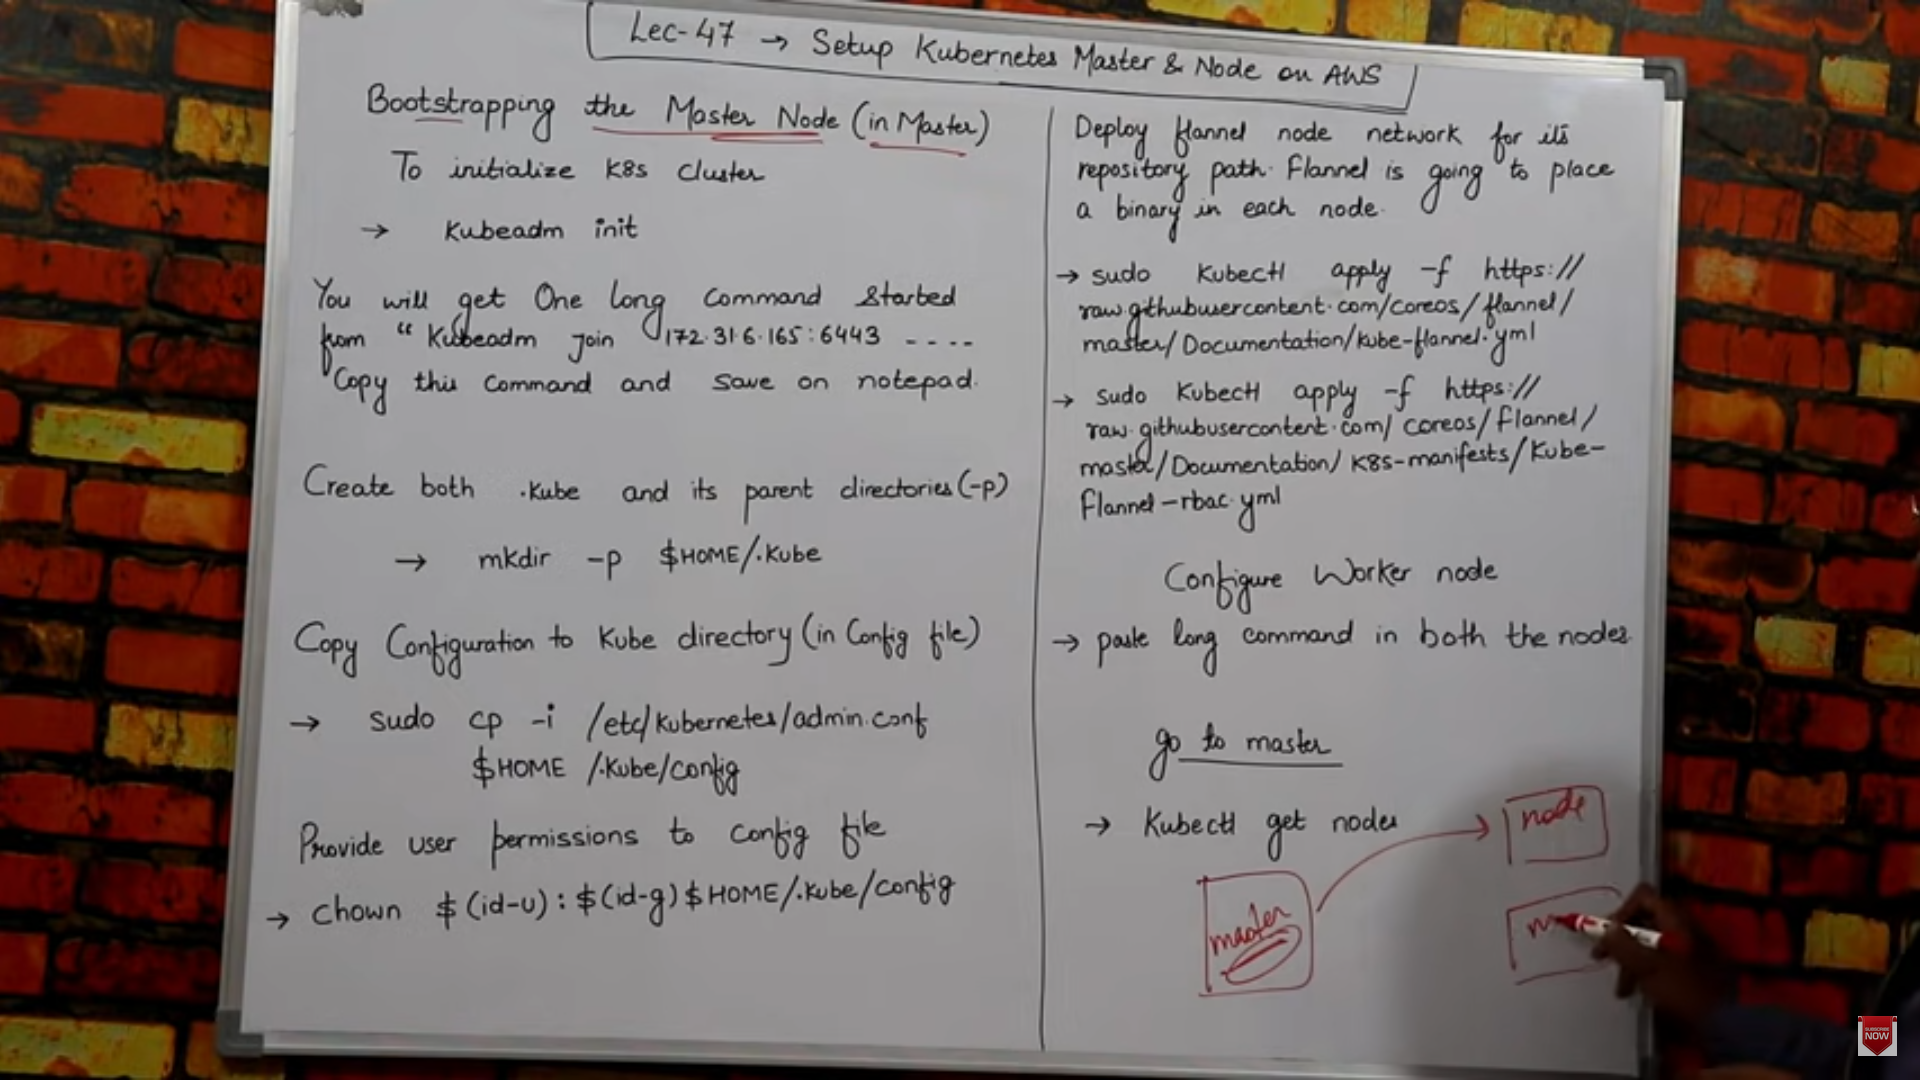 Lec-47 → Setup Kubernetes Master & Node on AWS
Bootstrapping the Master Node (in Master)
To initialize K8s cluster
→ Kubeadm init
You will get One long Command started
from "Kubeadm join 172.31.6.165:6443 ----
Copy this Command and save on notepad.
Create both .Kube and its parent directories (-p)
→ mkdir -p $HOME/.Kube
Copy Configuration to Kube directory (in Config file)
→ sudo cp -i /etc/kubernetes/admin.conf
$HOME /.Kube/config
Provide user permissions to config file
→ chown $(id-u):$(id-g) $HOME/.Kube/config
Deploy flannel node network for its
repository path. Flannel is going to place
a binary in each node.
→ sudo Kubectl apply -f https://
raw.githubusercontent.com/coreos/flannel/
master/Documentation/kube-flannel.yml
→ sudo Kubectl apply -f https://
raw.githubusercontent.com/coreos/flannel/
master/Documentation/K8s-manifests/Kube-
flannel-rbac.yml
Configure Worker node
→ paste long command in both the nodes
go to master
→ Kubectl get nodes
node
master
SUBSCRIBE
NOW